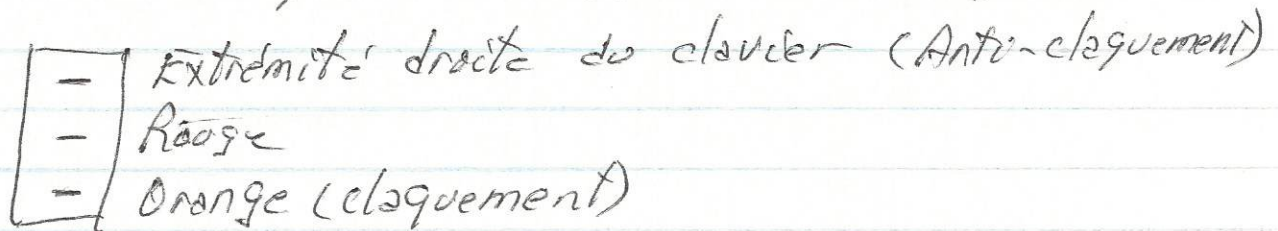 - Extrémité droite du clavier (Anti-claquement)
- Rouge
- Orange (claquement)